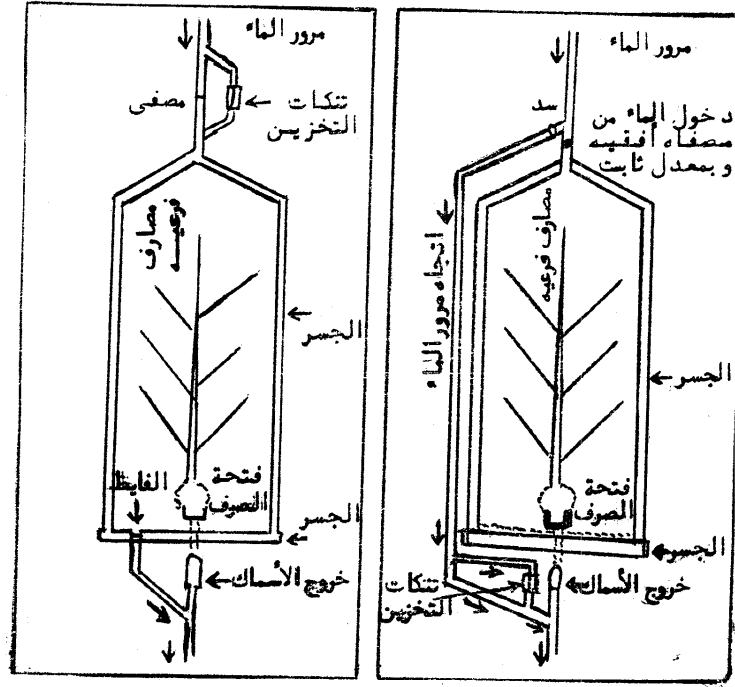 مرور الماء
سد
دخول الماء من
مصفاه أفقيه
وبمعدل ثابت
اتجاه مرور الماء
مصارف فرعيه
الجسر
فتحة
الصرف
الجسر
تنكات
التخزين
خروج الأسماك
مرور الماء
مصفى
تنكات
التخزين
مصارف
فرعيه
الجسر
الفايظ
فتحة
التصرف
الجسر
خروج الأسماك